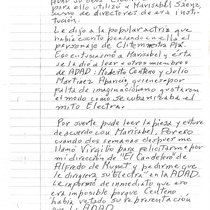 para ello utilizó a Marisabel Sáenz,
una de directores de esa insti-
tución.
Le dijo a la popular actriz que
había escrito pensando en ella el
personaje de Clitemnestra Pla.
Se entusiasmó Marisabel y ésta
se la dio a leer a otros miembros
de ADAD. Modesto Centeno y Julio
Martínez Aparicio, quienes por
falta de imaginación no gustaron
el modo como se cubanizaba el
mito Electra.
Por suerte pude leer la pieza y estuve
de acuerdo con Marisabel. Por eso
cuando dos semanas después me
llamó Virgilio para felicitarme por
mi dirección de "El Candelero" de
Alfredo de Musset y pedirme que
le dirigiera su "Electra" en la ADAD.
Le informé de inmediato que no
era imposible porque Centeno
había vetado su representación